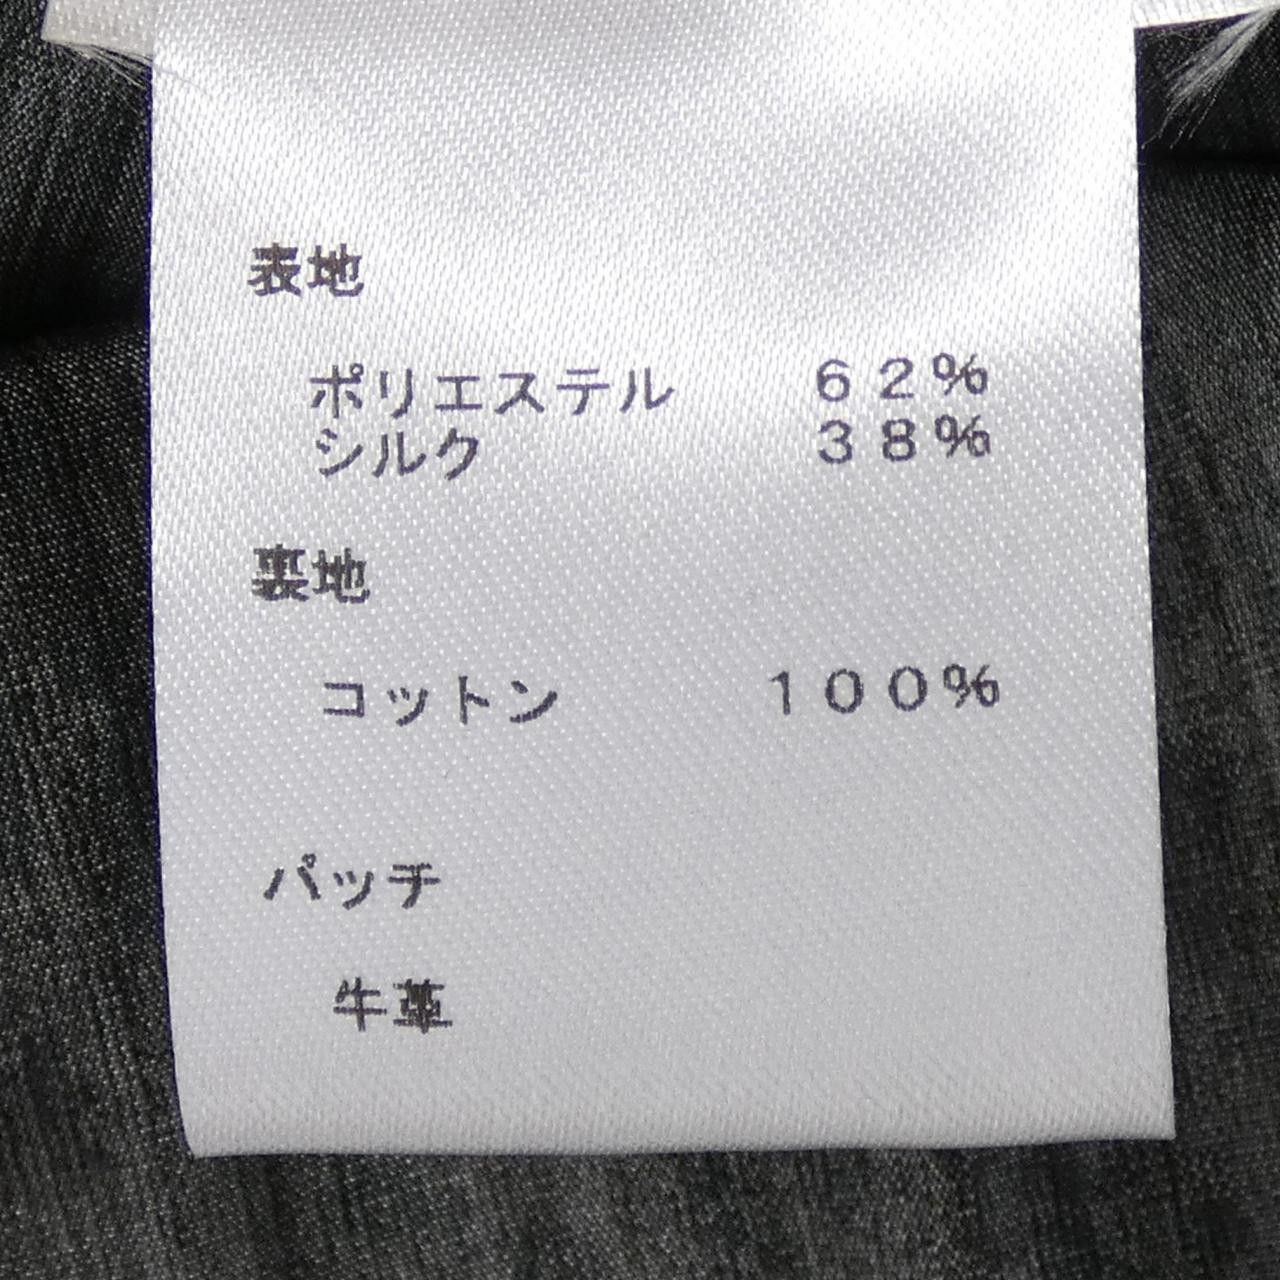 表地
ポリエステル ６２％
シルク ３８％
裏地
コットン １００％
パッチ
牛革